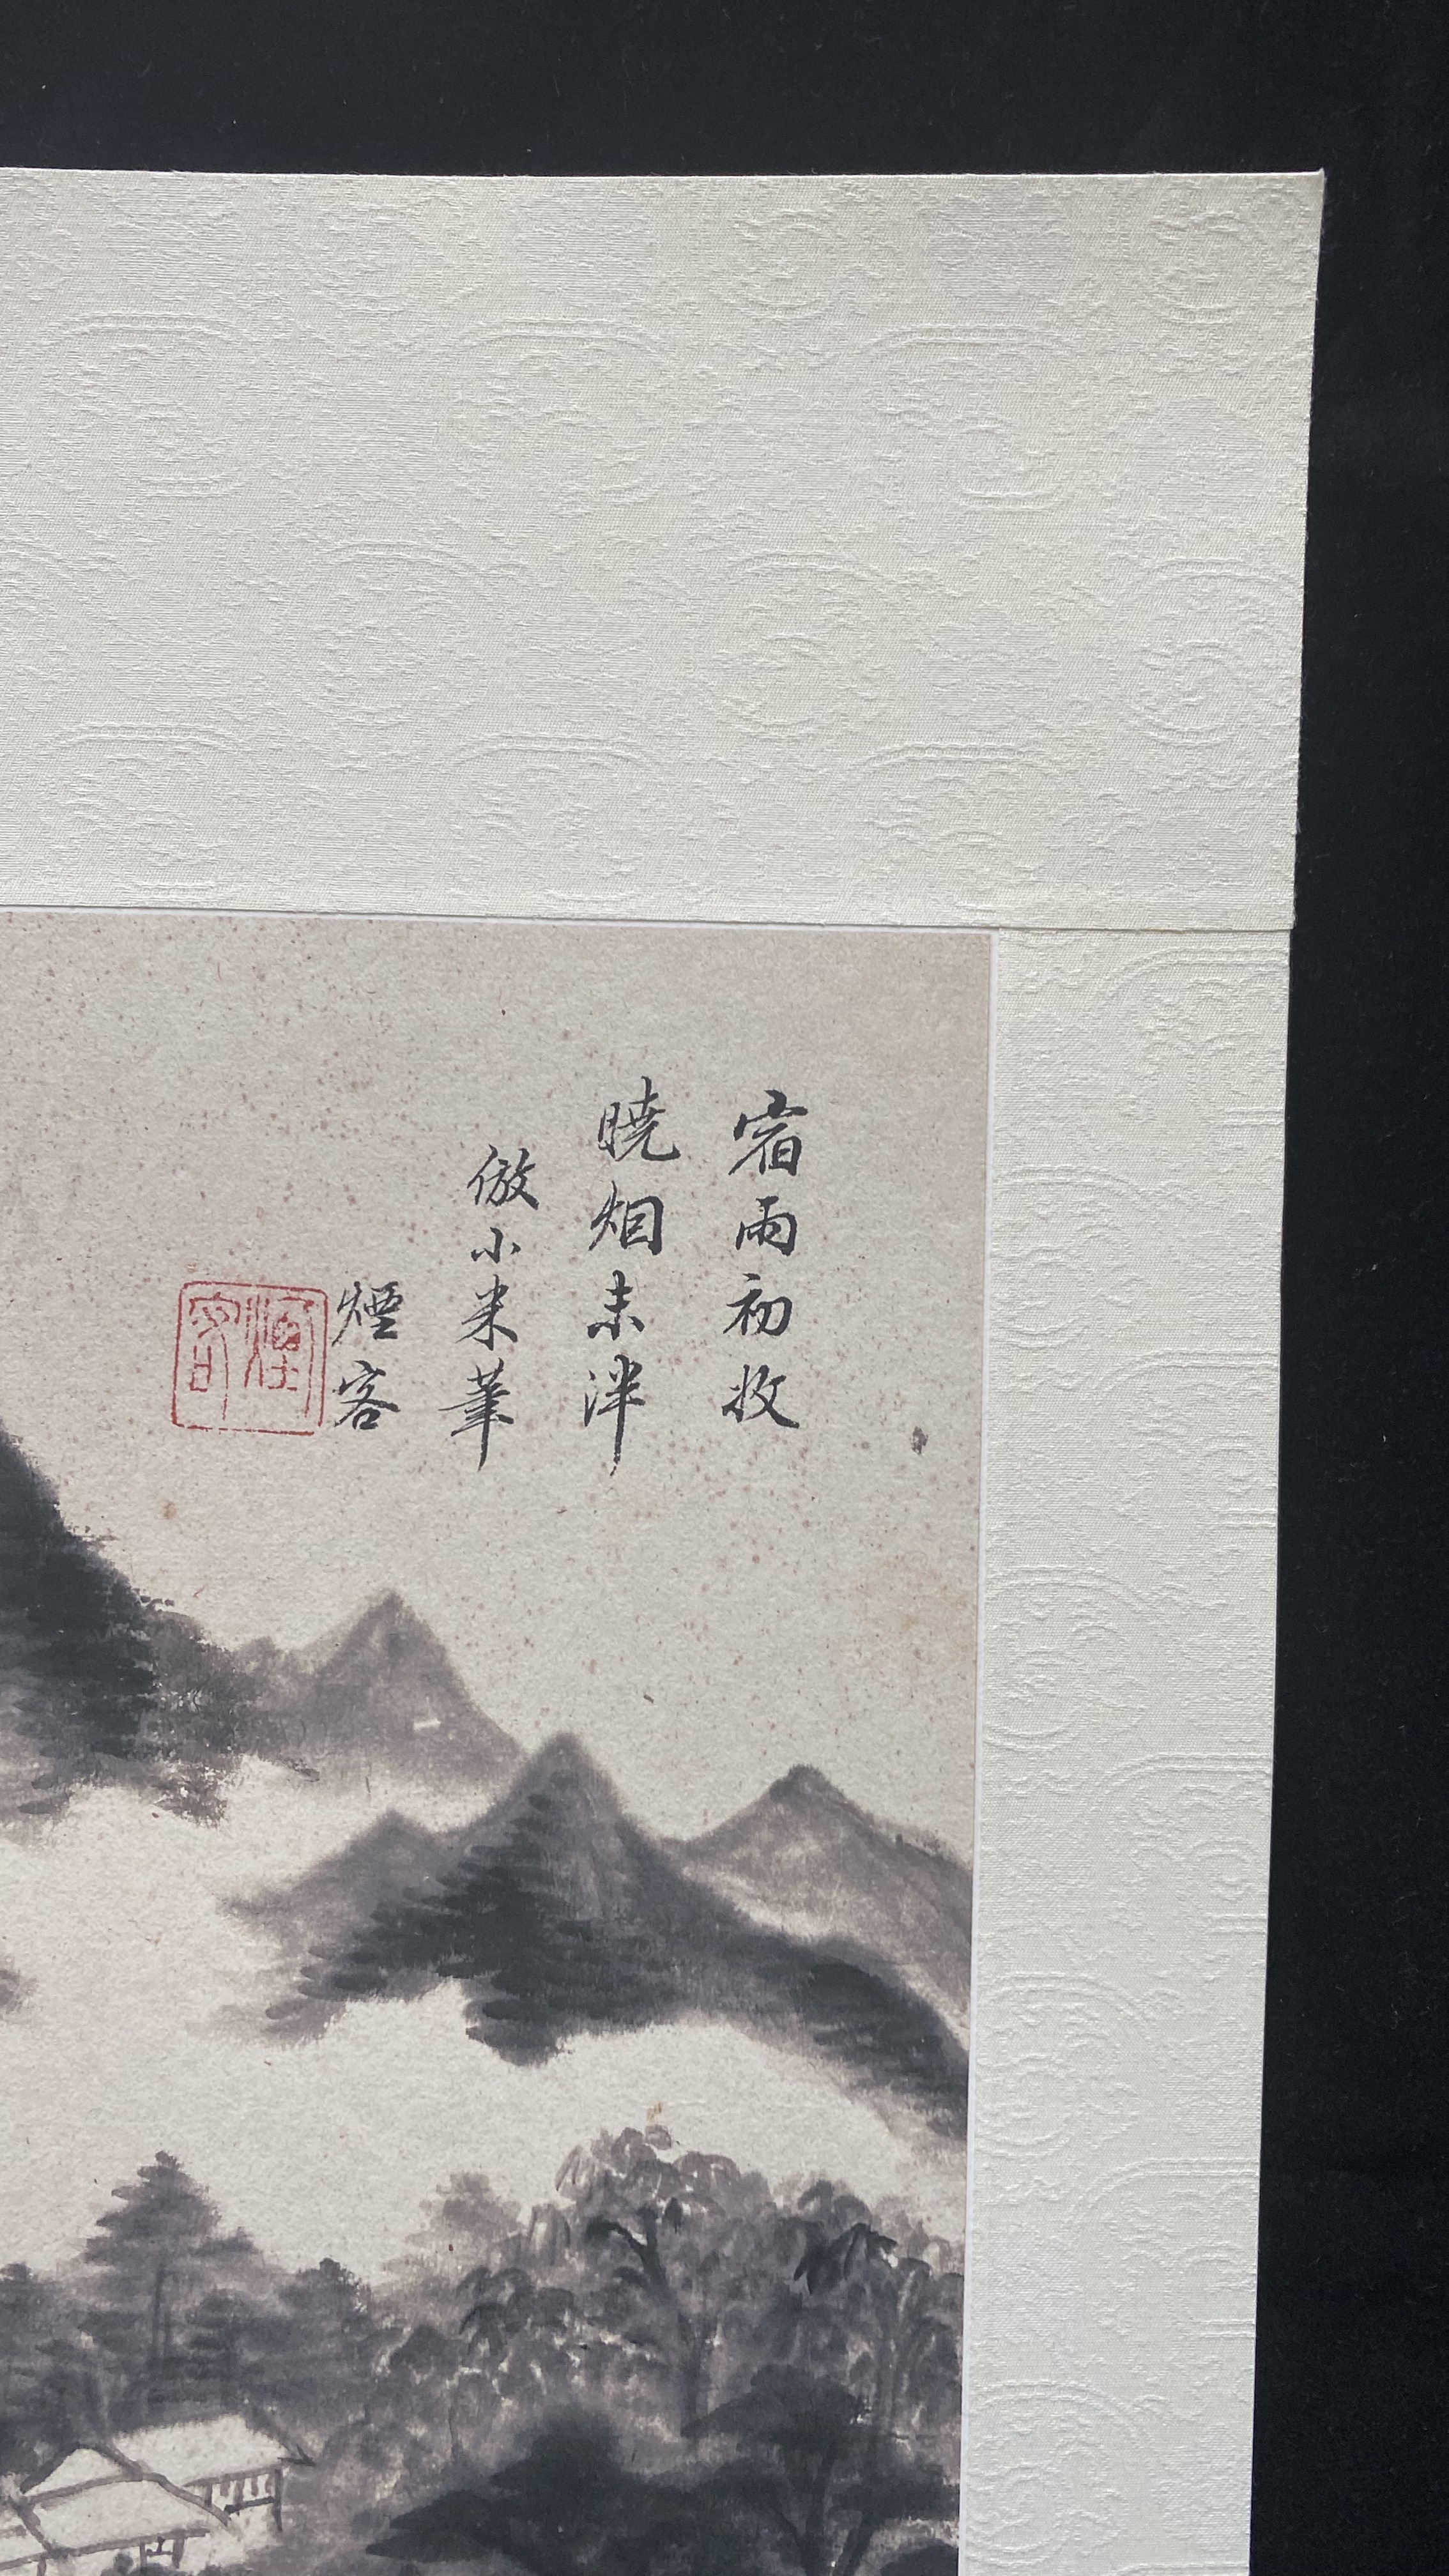 宿雨初收
曉烟未泮
倣小米筆
煙客
煙客